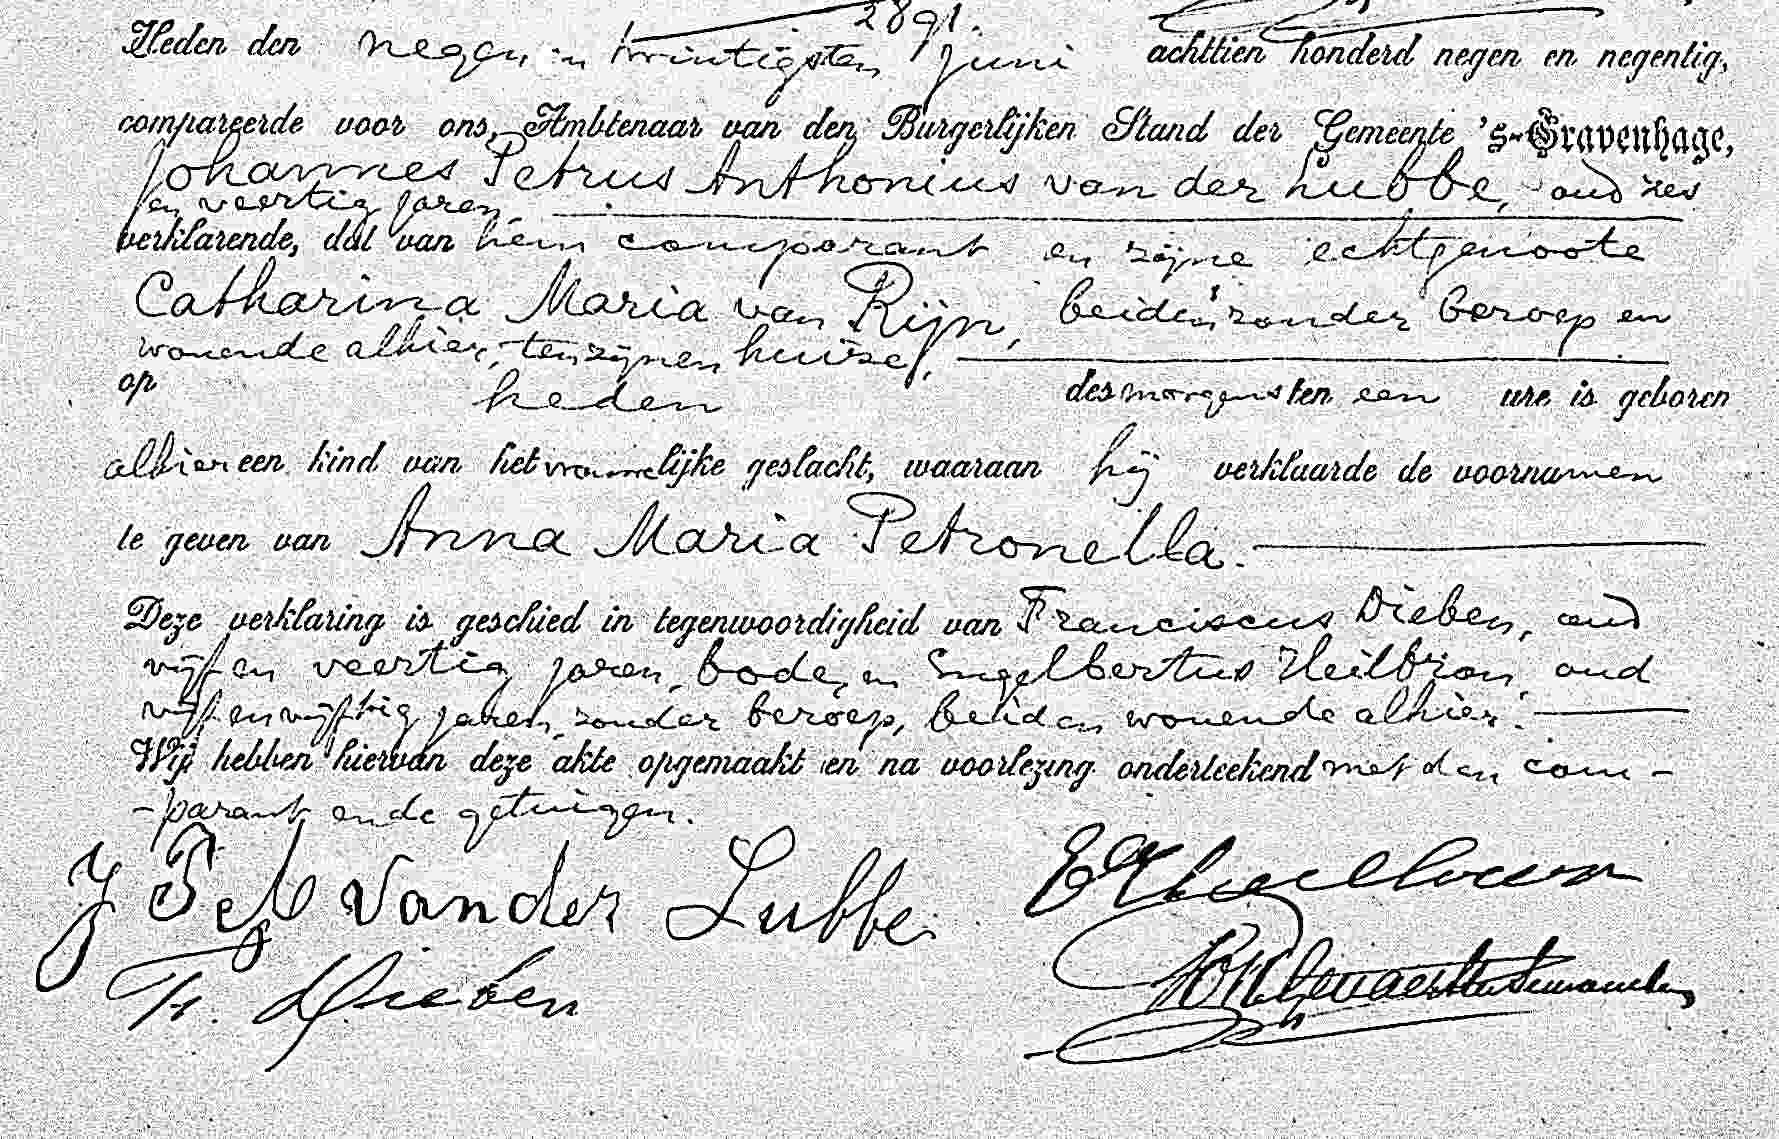 2891.
Heden den negen en twintigsten Juni achttien honderd negen en negentig,
compareerde voor ons, Ambtenaar van den Burgerlijken Stand der Gemeente 's-Gravenhage,
Johannes Petrus Anthonius van der Lubbe, oud zes
en veertig jaren,
verklarende, dat van hem comparant en zijne echtgenoote
Catharina Maria van Rijn, beiden zonder beroep en
wonende alhier, ten zijnen huize,
op heden des morgens ten een ure is geboren
alhier een kind van het vrouwelijke geslacht, waaraan hij verklaarde de voornamen
te geven van Anna Maria Petronella.
Deze verklaring is geschied in tegenwoordigheid van Franciscus Dieben, oud
vijf en veertig jaren, bode, en Engelbertus Heilbron, oud
vijf en vijftig jaren, zonder beroep, beiden wonende alhier.
Wij hebben hiervan deze akte opgemaakt en na voorlezing onderteekend met den com-
-parant en de getuigen.
J P A van der Lubbe
Fr. Dieben